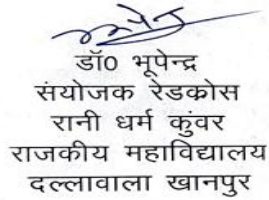 भूपेन्द्र
डॉ0 भूपेन्द्र
संयोजक रेडकोस
रानी धर्म कुंवर
राजकीय महाविद्यालय
दल्लावाला खानपुर